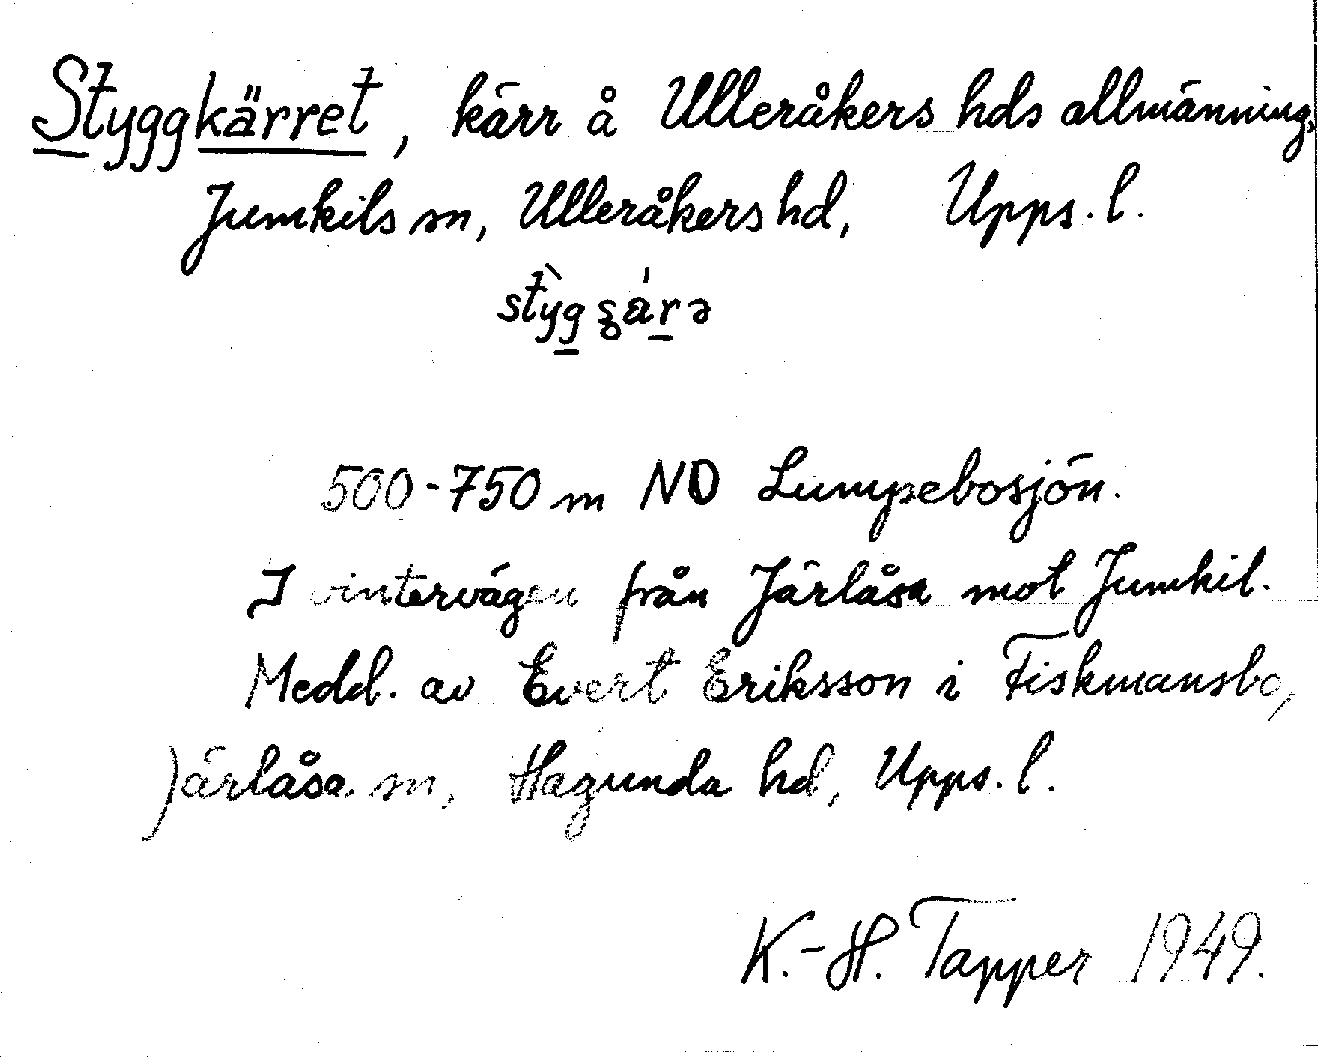 Styggkärret, kärr å Ulleråkers hds allmänning,
Jumkils sn, Ulleråkers hd, Upps. l.
500-750 m NO Lumpebosjön.
I vintervägen från Järlåsa mot Jumkil.
Medd. av Evert Eriksson i Fiskmansbo,
Järlåsa sn, Hagunda hd, Upps. l.
K.-H. Tapper 1949.